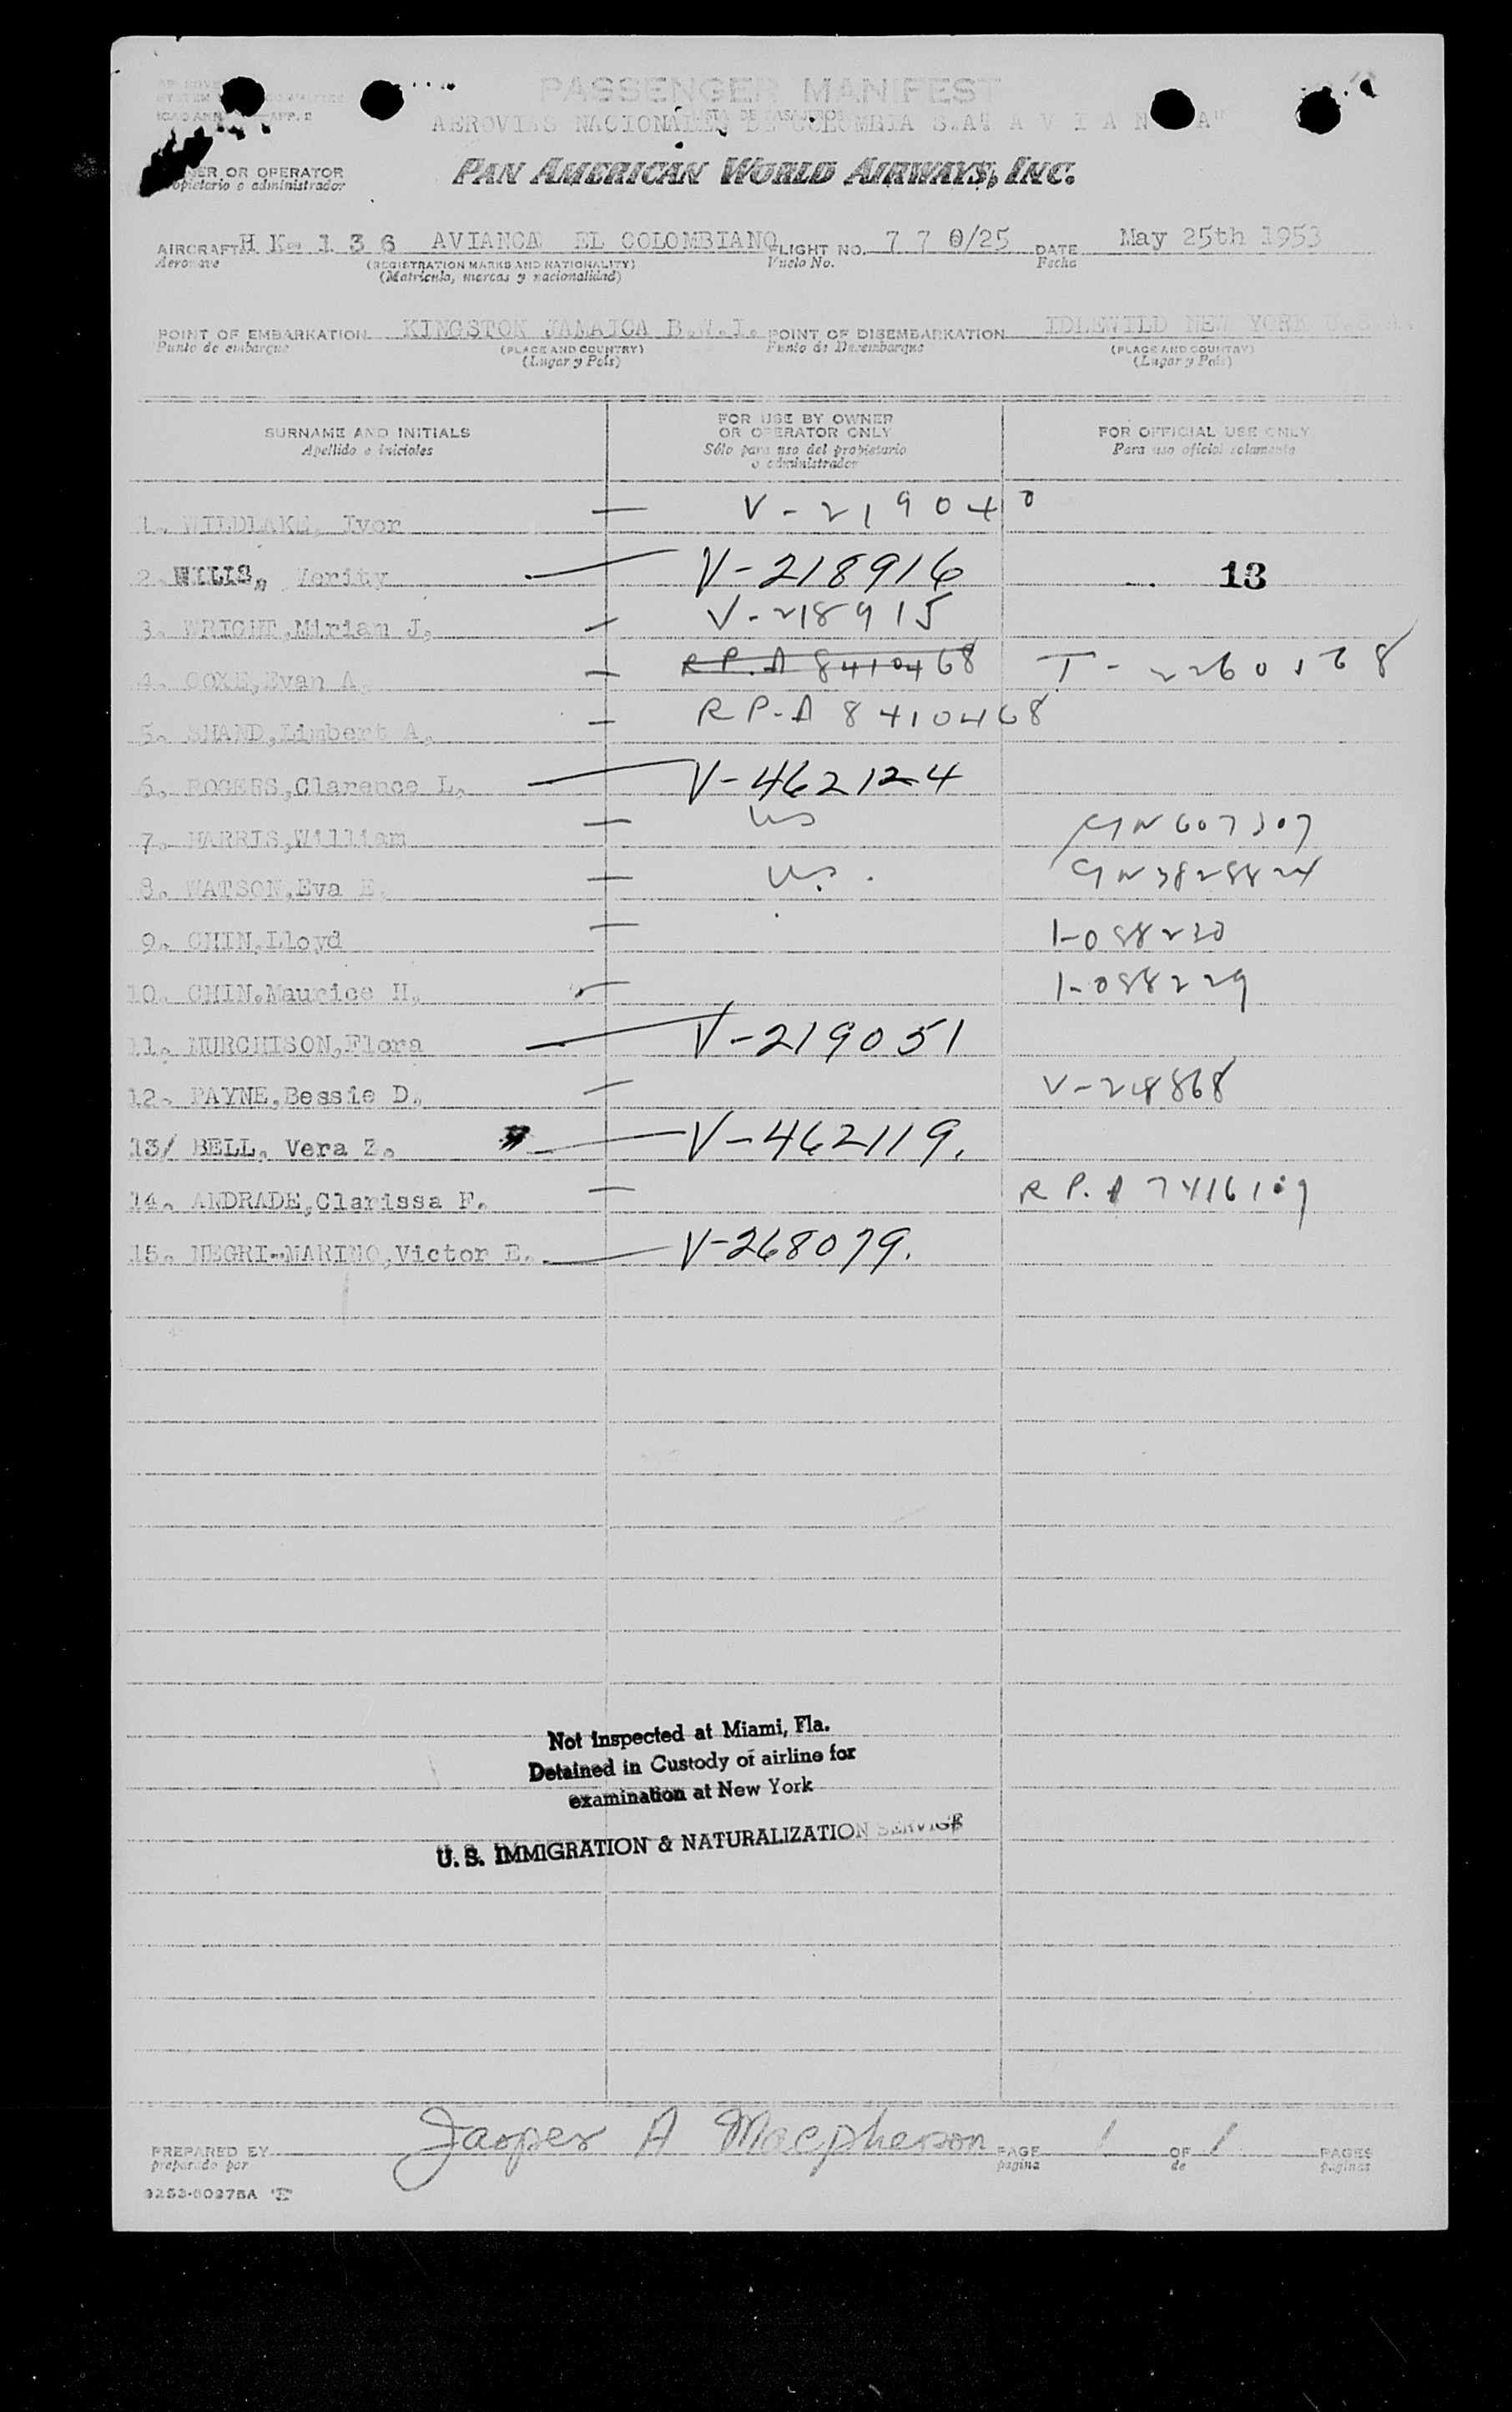 PASSENGER MANIFEST
LISTA DE PASAJEROS
AEROVIAS NACIONALES DE COLOMBIA S.A" A V I A N A"
PAN AMERICAN WORLD AIRWAYS, INC.
OWNER OR OPERATOR
Propietario o administrador
AIRCRAFT H K- 1 3 6 AVIANCA EL COLOMBIANO FLIGHT NO. 7 7 0/25 DATE May 25th 1953
Aeronave (REGISTRATION MARKS AND NATIONALITY) Vuelo No. Fecha
(Matricula, marcas y nacionalidad)
POINT OF EMBARKATION KINGSTON JAMAICA B.W.I. POINT OF DISEMBARKATION IDLEWILD NEW YORK U.S.A.
Punto de embarque (PLACE AND COUNTRY) Punto de Desembarque (PLACE AND COUNTRY)
(Lugar y País) (Lugar y País)
SURNAME AND INITIALS
Apellido e iniciales
FOR USE BY OWNER
OR OPERATOR ONLY
Sólo para uso del propietario
o administrador
FOR OFFICIAL USE ONLY
Para uso oficial solamente
1. WILDLAKE, Ivor — V-219040
2. WILLIS, Verity — V-218916 13
3. WRIGHT,Miriam J, — V-218915
4. COXE,Evan A. — R P. A 8410468 T-2260168
5. SHAND,Limbert A, — R P-A 8410468
6. ROGERS,Clarence L. — V-462124
7. HARRIS,William — US CN 607307
8. WATSON,Eva E. — U.S. CN 3828824
9. CHIN,Lloyd — 1-088230
10. CHIN.Maurice H, — 1-088229
11. MURCHISON,Flora — V-219051
12. PAYNE,Bessie D. — V-218868
13/ BELL, Vera Z. — V-462119.
14. ANDRADE,Clarissa F. — R P. A 7416109
15. NEGRI-MARINO,Victor E. — V-268079.
Not Inspected at Miami, Fla.
Detained in Custody of airline for
examination at New York
U. S. IMMIGRATION & NATURALIZATION SERVICE
PREPARED BY Jasper A Macpherson PAGE 1 OF 1 PAGES
preparado por pagina de paginas
9253-00275A "E"